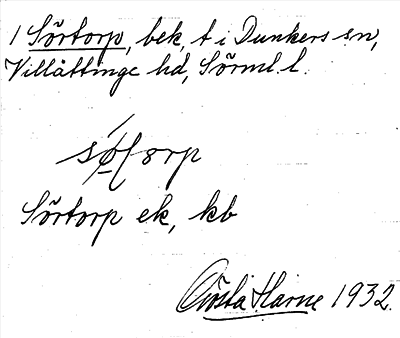 1 Sörtorp, bek, t i Dunkers sn,
Villåttinge hd, Sörml. l.
Sörtorp ek, kb
Gösta Harne 1932.